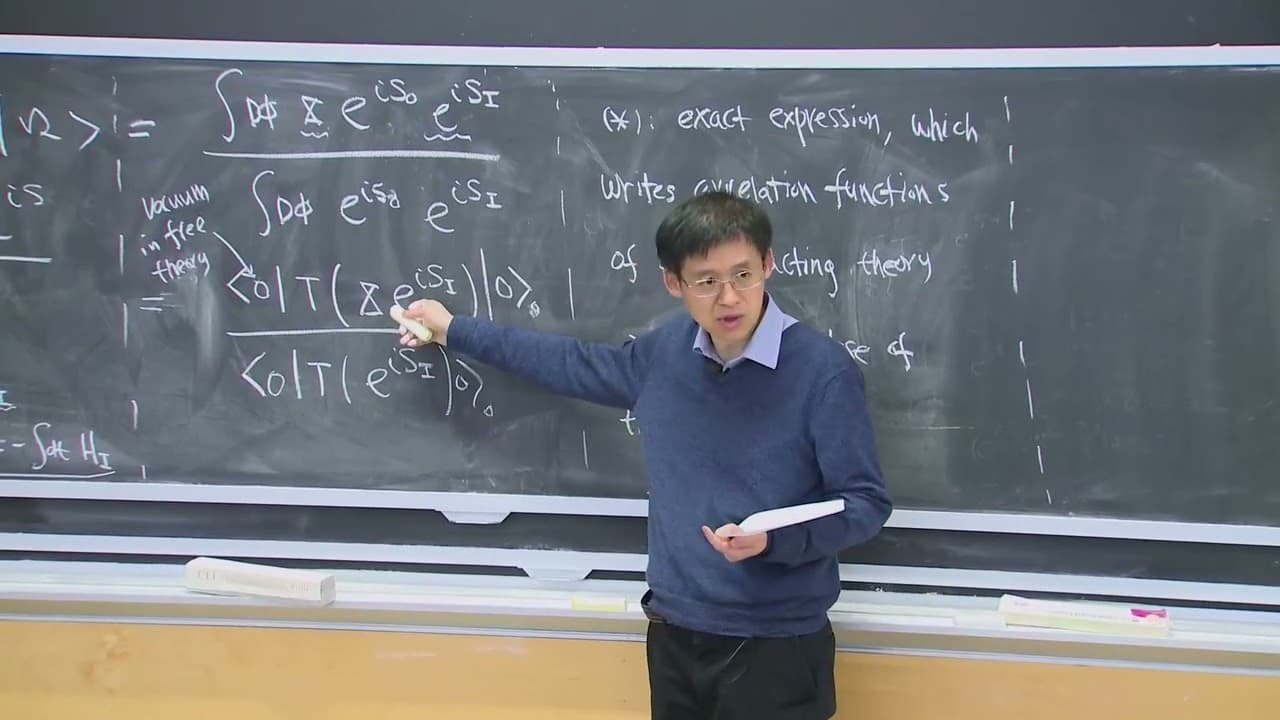 | Ω > =
∫Dϕ X e^{iS_0} e^{iS_I}
∫Dϕ e^{iS_0} e^{iS_I}
iS
vacuum
in free
theory
= <0|T(X e^{iS_I})|0>_0
<0|T(e^{iS_I})|0>_0
- ∫dt H_I
(*): exact expression, which
writes correlation functions
of cting theory
of